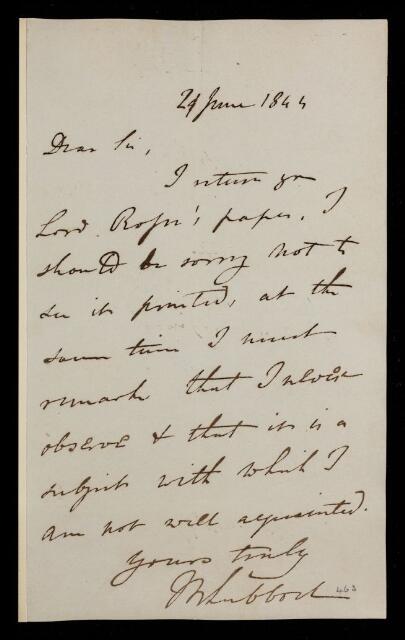 24 June 1844
Dear Sir,
I return yr
Lord Rosse's paper. I
should be sorry not to
see it printed, at the
same time I must
remark that I never
observe & that it is a
subject with which I
am not well acquainted.
Yours truly
JWLubbock
463